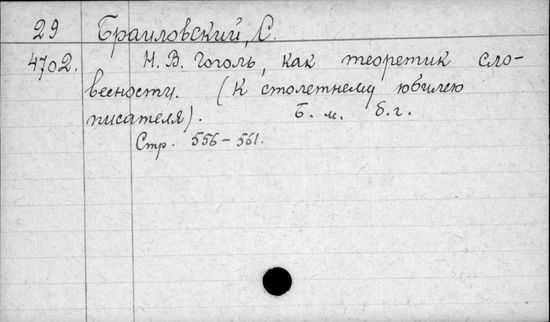 29 Браиловский, С.
4702. Н. В. Гоголь, как теоретик сло-
весности. (К столетнему юбилею
писателя). Б. м. б. г.
Стр. 556-561.